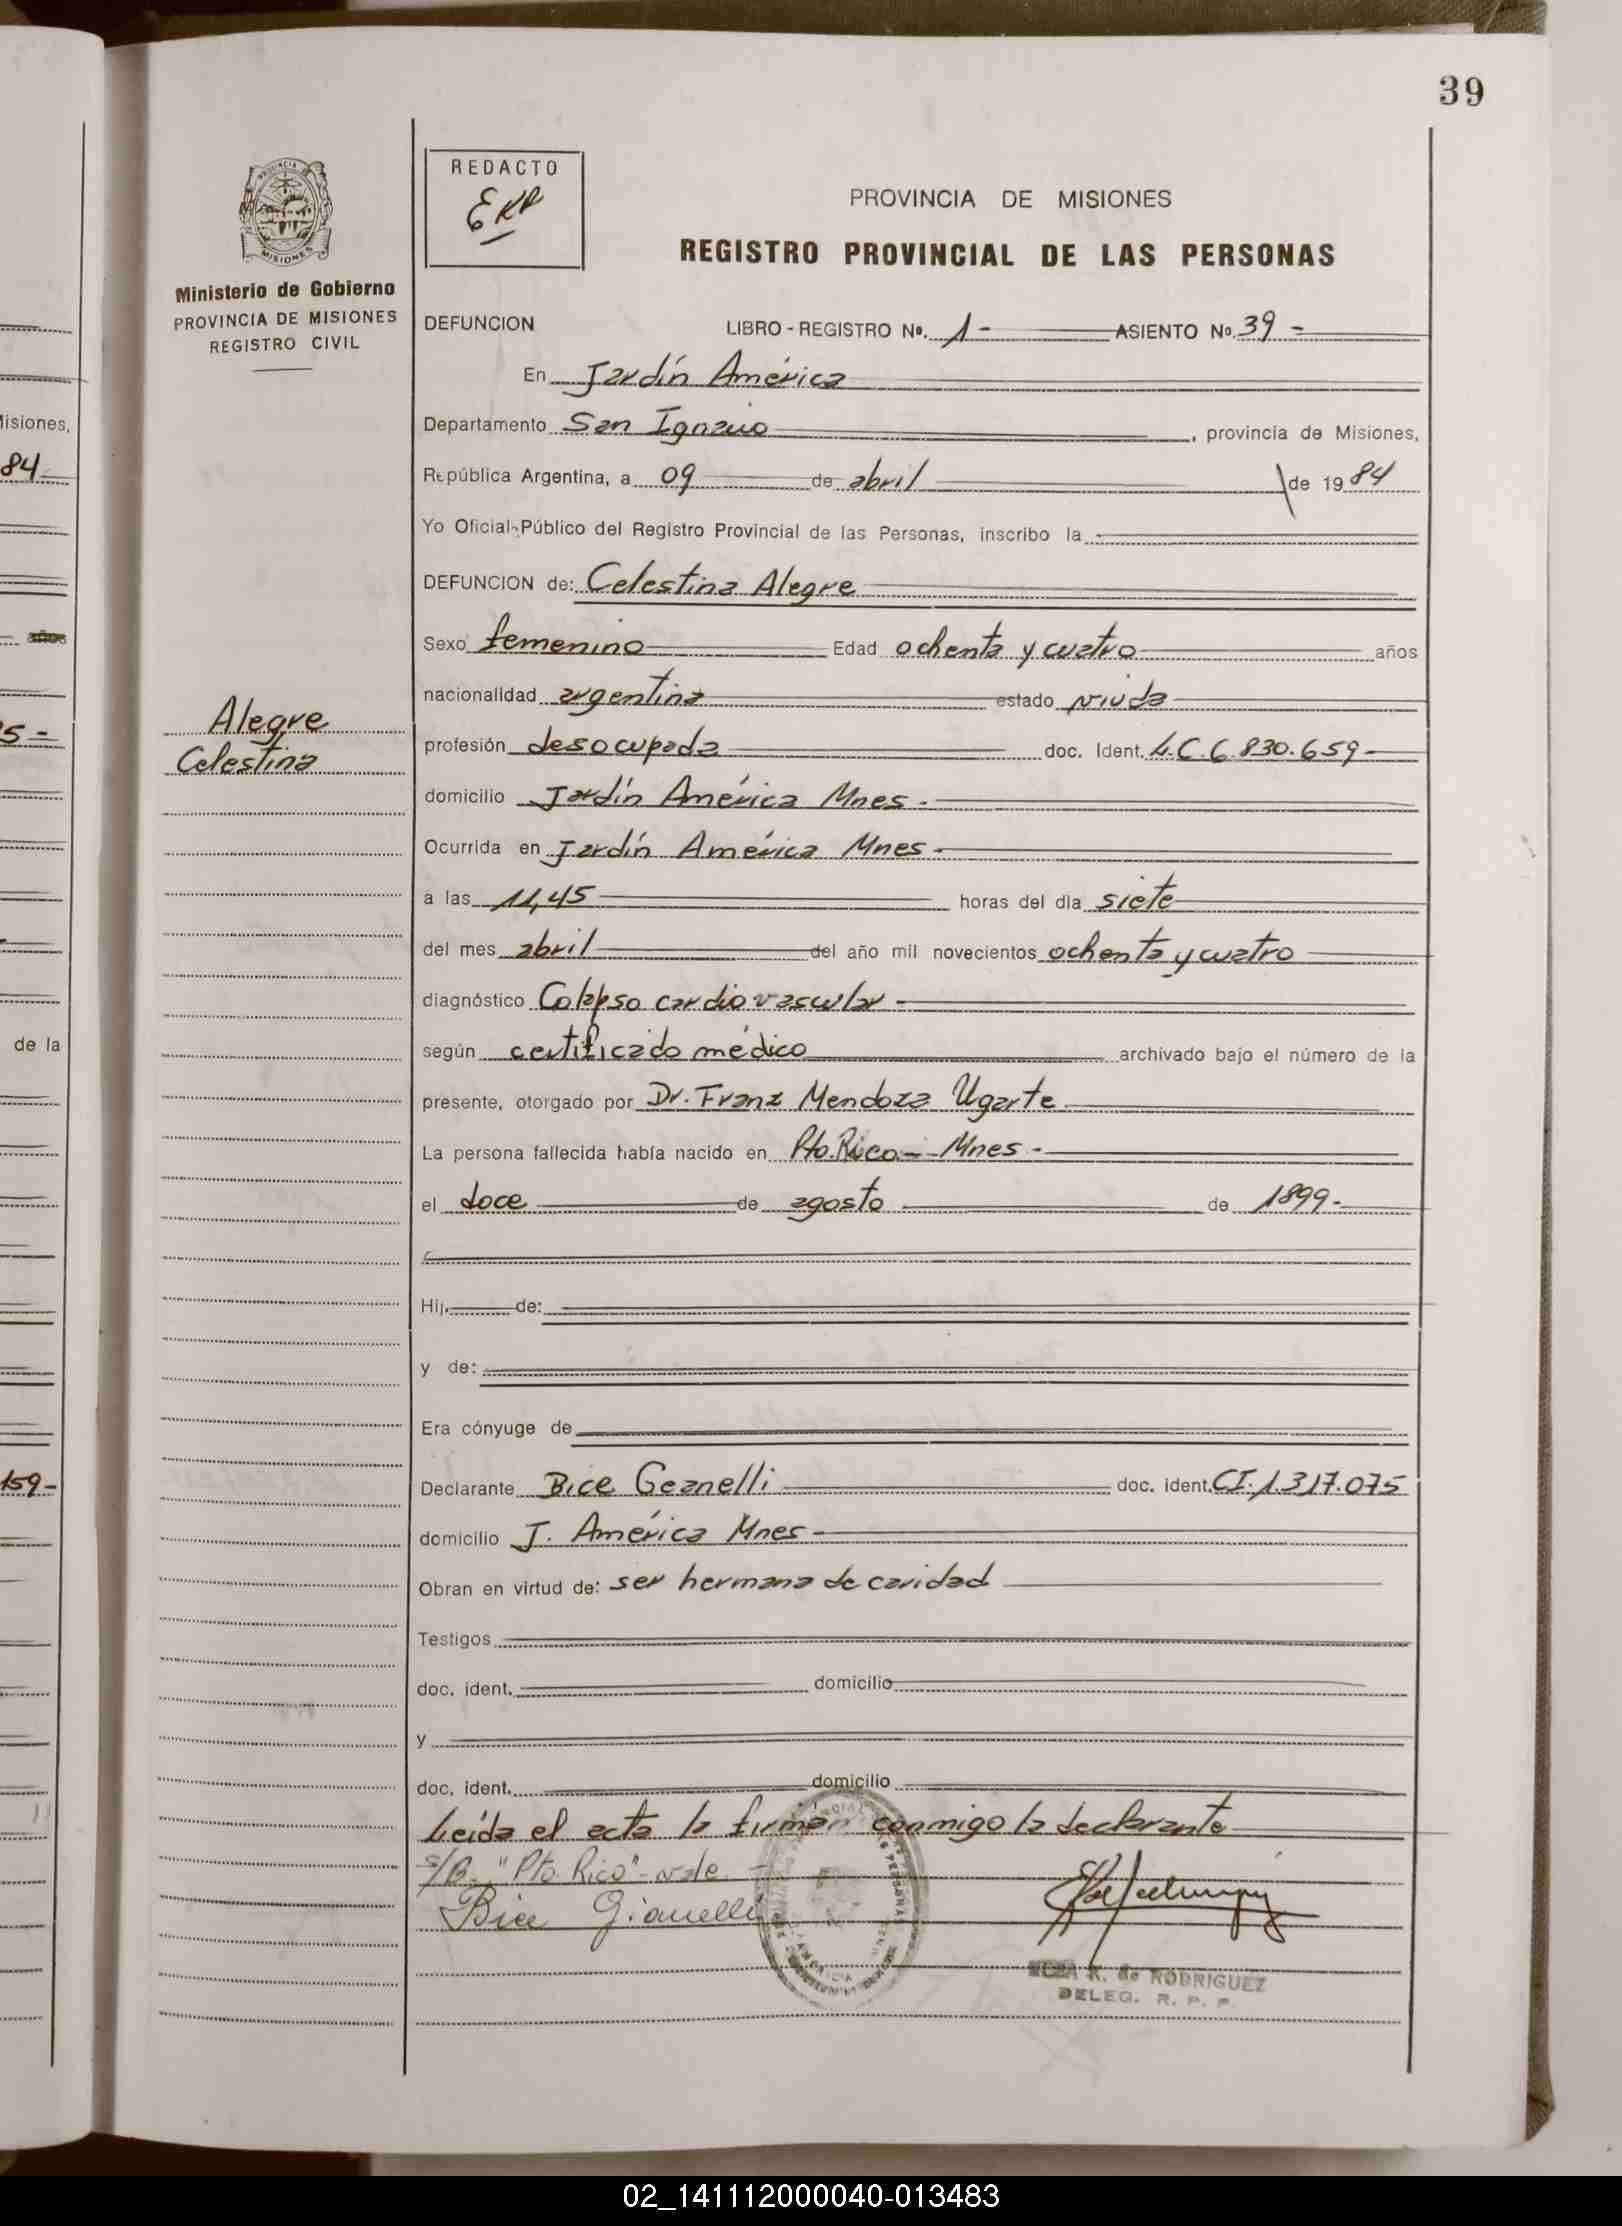 39
REDACTO
EKR
PROVINCIA DE MISIONES
REGISTRO PROVINCIAL DE LAS PERSONAS
Ministerio de Gobierno
PROVINCIA DE MISIONES
REGISTRO CIVIL
DEFUNCION LIBRO - REGISTRO Nº. 1 - ASIENTO Nº. 39 -
En Jardín América
Departamento San Ignacio, provincia de Misiones,
República Argentina, a 09 de abril de 1984
Yo Oficial Público del Registro Provincial de las Personas, inscribo la
DEFUNCION de: Celestina Alegre
Sexo femenino Edad ochenta y cuatro años
nacionalidad argentina estado viuda
Alegre
Celestina
profesión desocupada doc. Ident. L.C. 6.830.659 -
domicilio Jardín América Mnes. -
Ocurrida en Jardín América Mnes -
a las 11,45 horas del día siete
del mes abril del año mil novecientos ochenta y cuatro
diagnóstico Colapso cardiovascular -
según certificado médico archivado bajo el número de la
presente, otorgado por Dr. Franz Mendoza Ugarte
La persona fallecida había nacido en Pto. Rico - Mnes -
el doce de agosto de 1899 -
Hij de:
y de:
Era cónyuge de
Declarante Bice Geanelli doc. ident. CI. 1.317.075
domicilio J. América Mnes
Obran en virtud de: ser hermana de caridad
Testigos
doc. ident. domicilio
y
doc. ident. domicilio
Leída el acta la firman conmigo la declarante
S/B "Pto. Rico" - vale -
Bice Gianelli
K. de RODRIGUEZ
DELEG. R. P. P.
isiones,
84
años
5 -
de la
159 -
02_141112000040-013483